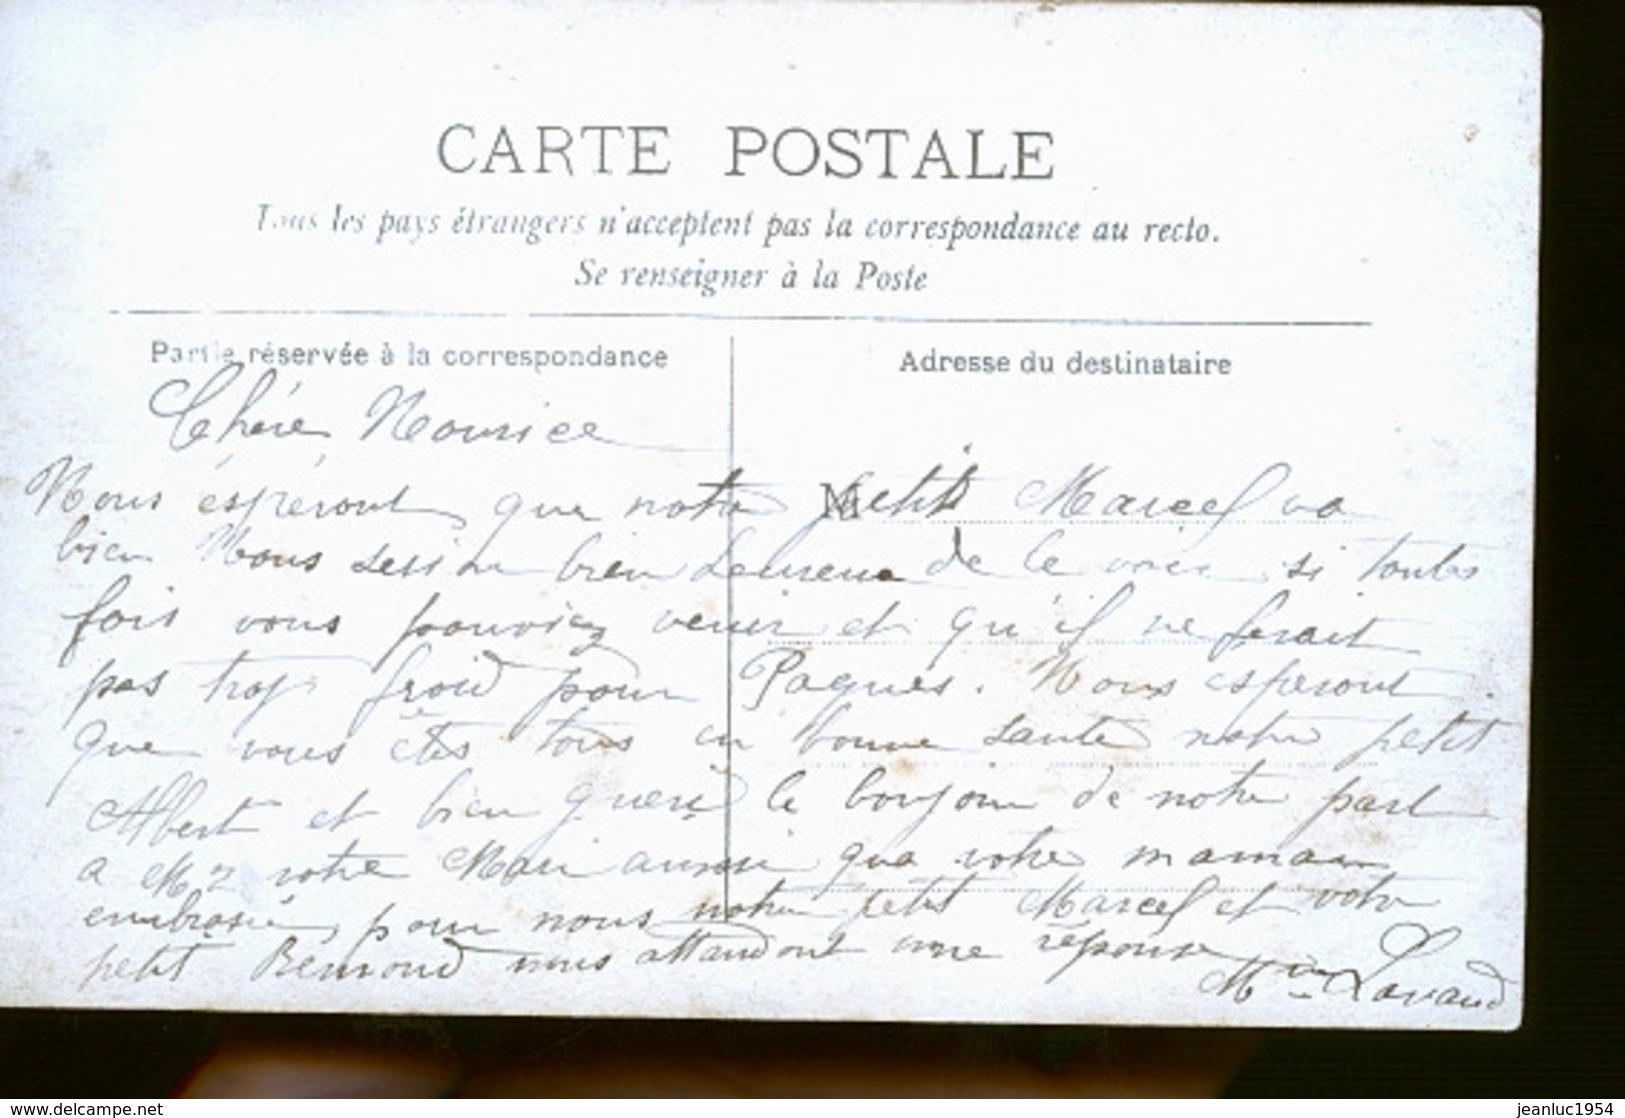 CARTE POSTALE
Tous les pays étrangers n'acceptent pas la correspondance au recto.
Se renseigner à la Poste
Partie réservée à la correspondance
Adresse du destinataire
Chére Nourice
Nous éspéront que notre petit Marcel va
bien Nous bien heureux de le voir si toutes
fois vous pouviez venir et qu'il ne ferait
pas trop froid pour Paques. Nous esperont
que vous êtes tous en bonne santé notre petit
Albert et bien gueri le bonjour de notre part
a Mr votre Mari aussi que votre maman
embrasié pour nous notre petit Marcel et votre
petit Remond nous attandont une réponse
Mme Lavaud
www.delcampe.net
jeanluc1954